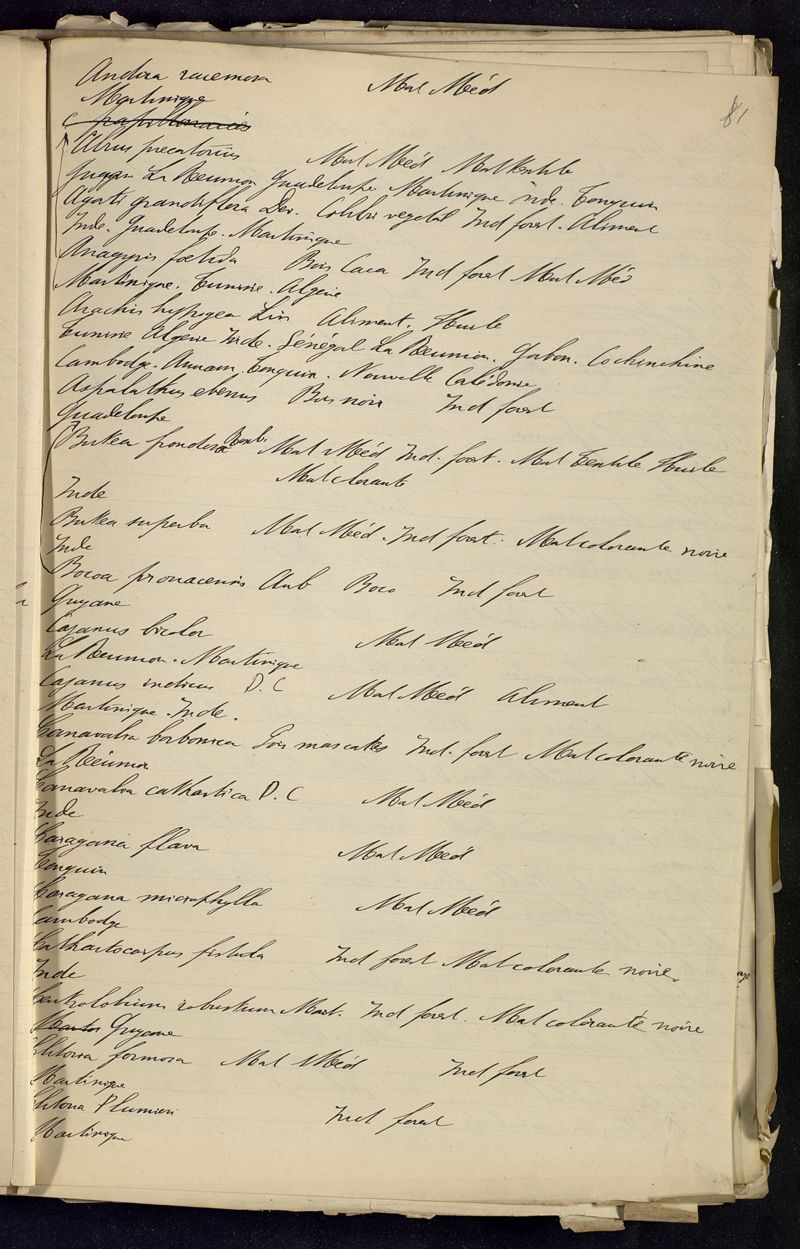 Andira racemosa Mat Méd
81
Martinique
Papillonacées
Abrus precatorius Mat Méd Mat textile
La Réunion Guadeloupe Martinique inde. Tonquin
Agati grandiflora Dev. Colibri vegetal Ind forest. Aliment
Inde. Guadeloupe. Martinique
Anagyris foetida Bois Caca Ind forest Mat Méd
Martinique. Tunisie. Algérie
Arachis hypogea Lin Aliment. Huile
Tunisie Algérie Inde. Sénégal La Réunion. Gabon. Cochinchine
Cambodge. Annam. Tonquin. Nouvelle Calédonie
Aspalathus ebenus Bois noir Ind forest
Guadeloupe
Butea frondosa Roxb. Mat Méd Ind. forest. Mat Textile Huile
Mat colorante
Inde
Butea superba Mat Méd. Ind forest. Mat colorante noire
Inde
Bocoa provacensis Aub Boco Ind forest
Guyane
Cajanus bicolor Mat Méd
La Réunion. Martinique
Cajanus indicus D.C Mat Méd Aliment
Martinique. Inde.
Canavalia borbonica Pois mascates Ind. forest Mat colorante noire
La Réunion
Canavalia cathartica D.C Mat Méd
Inde
Caragana flava Mat Méd
Tonquin
Caragana microphylla Mat Méd
Cambodge
Cathartocarpus fistula Ind forest Mat colorante noire.
Inde
Centrolobium robustum Mart. Ind forest. Mat colorante noire
Guyane
Clitoria formosa Mat Méd Ind forest
Martinique
Clitoria Plumieri Ind forest
Martinique